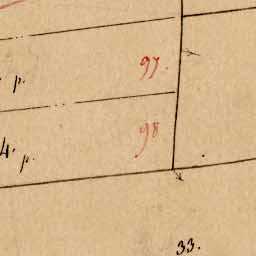 p. 97.
4. p. 98
33.